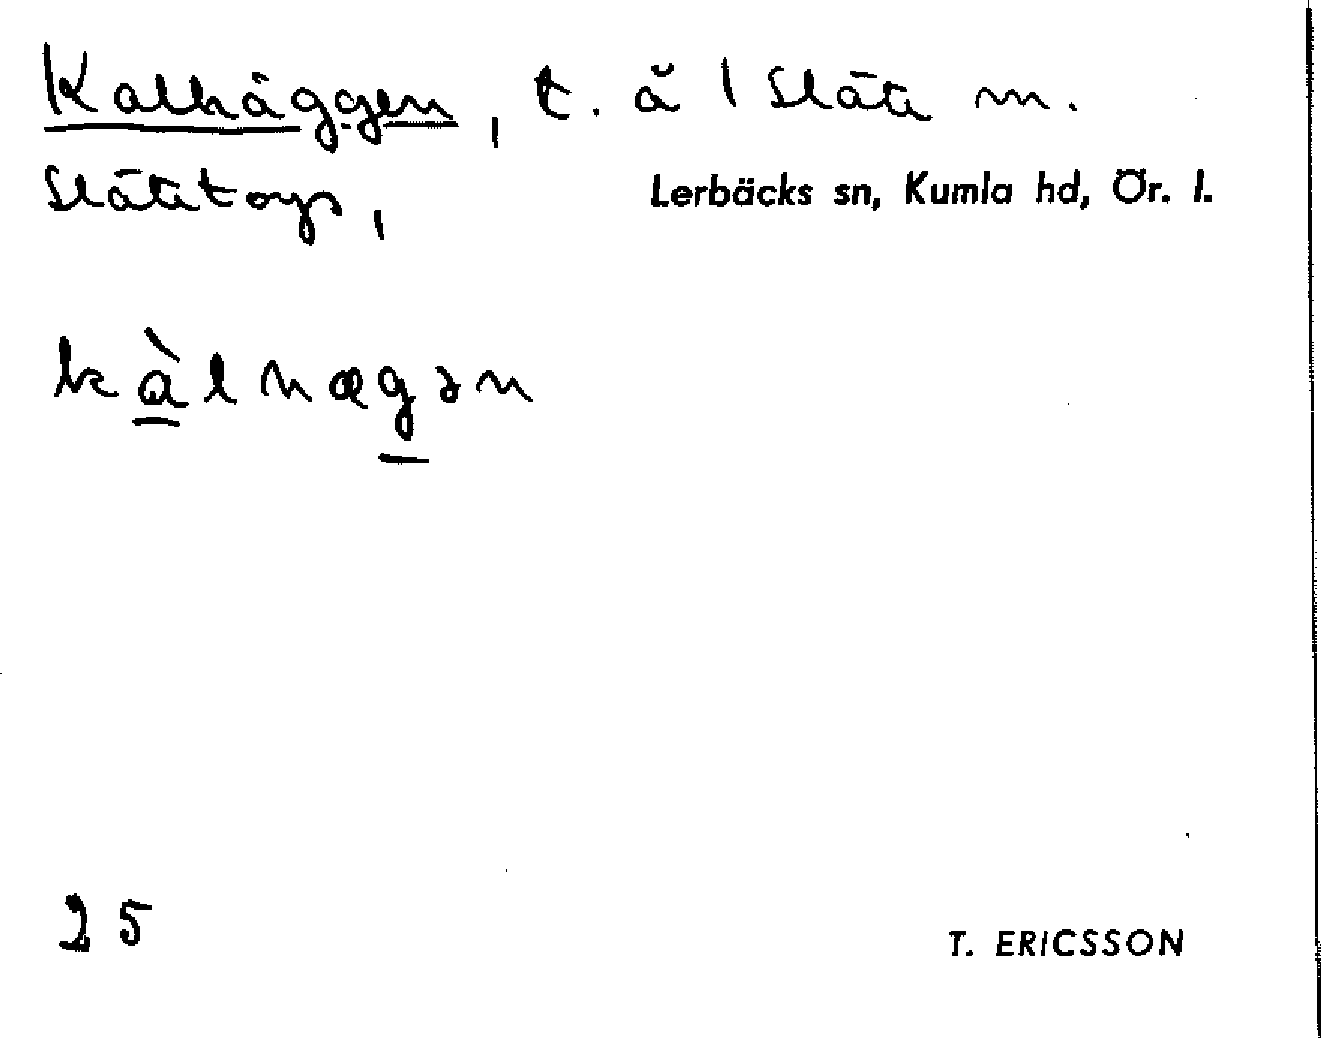 Kalhäggen, t. å l Slåta m.
Slåtatorp,
Lerbäcks sn, Kumla hd, Ör. l.
kàlhægən
25
T. ERICSSON